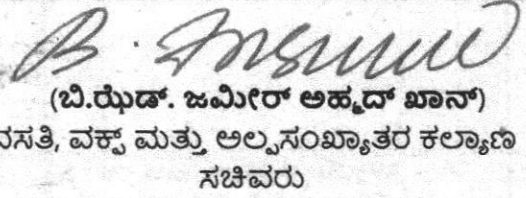 (ಬಿ.ಝೆಡ್. ಜಮೀರ್ ಅಹ್ಮದ್ ಖಾನ್)
ವಸತಿ, ವಕ್ಫ್ ಮತ್ತು ಅಲ್ಪಸಂಖ್ಯಾತರ ಕಲ್ಯಾಣ
ಸಚಿವರು